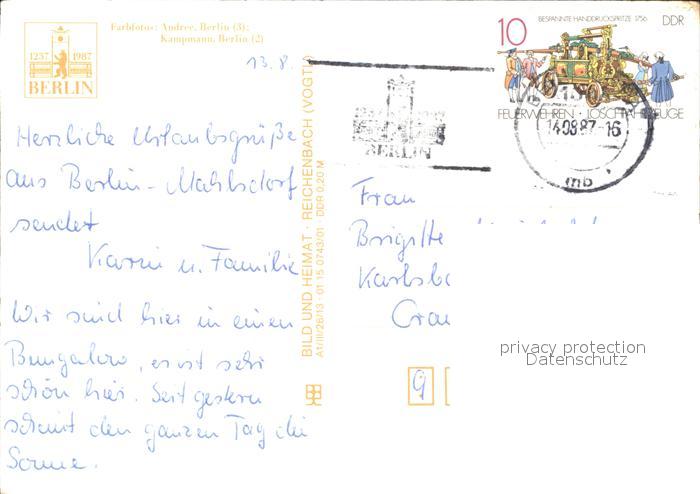 Farbfotos: Andree, Berlin (3);
Kampmann, Berlin (2)
1237 1987
BERLIN
13.8.
Herzliche Urlaubsgrüße
aus Berlin-Mahlsdorf
sendet
Karin u. Familie
Wir sind hier in einem
Bungalow, es ist sehr
schön hier. Seit gestern
scheint den ganzen Tag die
Sonne.
BILD UND HEIMAT · REICHENBACH (VOGTL)
A1/III/26/13 · 01 15 0743/01 DDR 0,20 M
BERLIN
10
BESPANNTE HANDDRUCKSPRITZE 1756
DDR
FEUERWEHREN · LÖSCHFAHRZEUGE
14.08.87-16
mb
Frau
Brigitte
9
privacy protection
Datenschutz